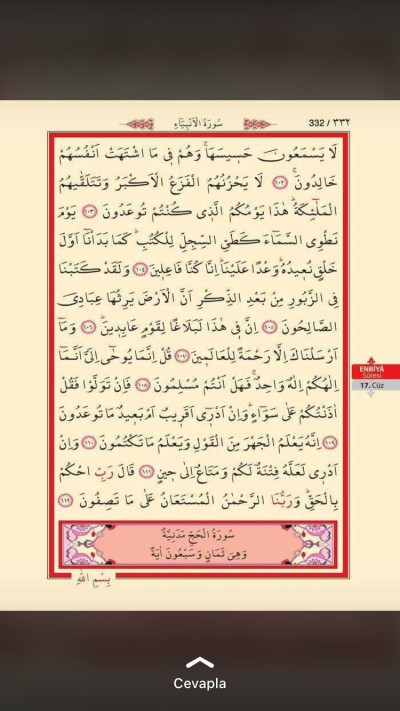 سُورَةُ الْاَنْبِيَٓاءِ
332 / ٣٣٢
لَا يَسْمَعُونَ حَس۪يسَهَاۚ وَهُمْ ف۪ي مَا اشْتَهَتْ اَنْفُسُهُمْ
خَالِدُونَۚ ﴿١٠٢﴾ لَا يَحْزُنُهُمُ الْفَزَعُ الْاَكْبَرُ وَتَتَلَقّٰيهُمُ
الْمَلٰٓئِكَةُۜ هٰذَا يَوْمُكُمُ الَّذ۪ي كُنْتُمْ تُوعَدُونَ ﴿١٠٣﴾ يَوْمَ
نَطْوِي السَّمَٓاءَ كَطَيِّ السِّجِلِّ لِلْكُتُبِۜ كَمَا بَدَأْنَٓا اَوَّلَ
خَلْقٍ نُع۪يدُهُۜ وَعْدًا عَلَيْنَاۜ اِنَّا كُنَّا فَاعِل۪ينَ ﴿١٠٤﴾ وَلَقَدْ كَتَبْنَا
فِي الزَّبُورِ مِنْ بَعْدِ الذِّكْرِ اَنَّ الْاَرْضَ يَرِثُهَا عِبَادِيَ
الصَّالِحُونَ ﴿١٠٥﴾ اِنَّ ف۪ي هٰذَا لَبَلَاغًا لِقَوْمٍ عَابِد۪ينَۜ ﴿١٠٦﴾ وَمَٓا
اَرْسَلْنَاكَ اِلَّا رَحْمَةً لِلْعَالَم۪ينَ ﴿١٠٧﴾ قُلْ اِنَّمَا يُوحٰٓى اِلَيَّ اَنَّمَٓا
اِلٰهُكُمْ اِلٰهٌ وَاحِدٌۚ فَهَلْ اَنْتُمْ مُسْلِمُونَ ﴿١٠٨﴾ فَاِنْ تَوَلَّوْا فَقُلْ
اٰذَنْتُكُمْ عَلٰى سَوَٓاءٍۜ وَاِنْ اَدْر۪ٓي اَقَر۪يبٌ اَمْ بَع۪يدٌ مَا تُوعَدُونَ
﴿١٠٩﴾ اِنَّهُ يَعْلَمُ الْجَهْرَ مِنَ الْقَوْلِ وَيَعْلَمُ مَا تَكْتُمُونَ ﴿١١٠﴾ وَاِنْ
اَدْر۪ي لَعَلَّهُ فِتْنَةٌ لَكُمْ وَمَتَاعٌ اِلٰى ح۪ينٍ ﴿١١١﴾ قَالَ رَبِّ احْكُمْ
بِالْحَقِّۜ وَرَبُّنَا الرَّحْمٰنُ الْمُسْتَعَانُ عَلٰى مَا تَصِفُونَ ﴿١١٢﴾
سُورَةُ الْحَجِّ مَدَنِيَّةٌ
وَهِيَ ثَمَانٍ وَسَبْعُونَ اٰيَةً
بِسْمِ اللّٰهِ
ENBİYÂ
Sûresi
17. Cüz
Cevapla